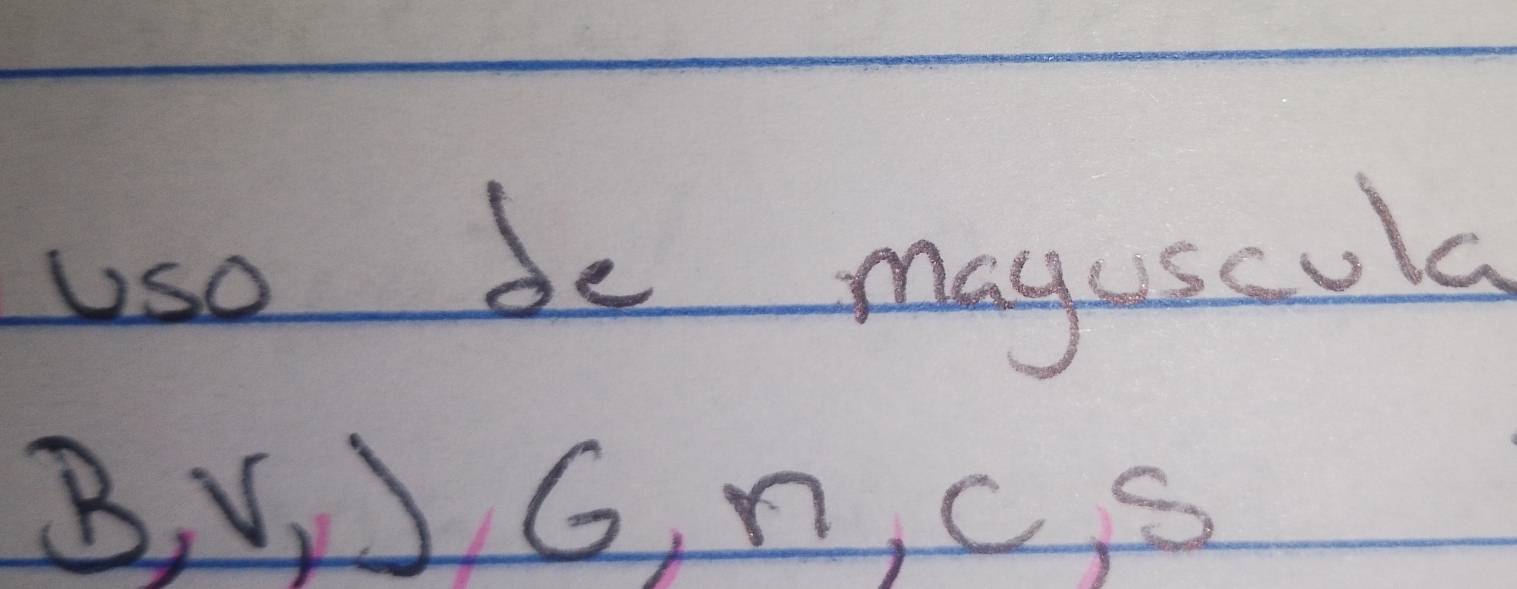 uso de mayuscula
B, V, J, G, n, C, S